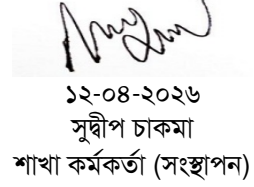 ১২-০৪-২০২৬
সুদ্বীপ চাকমা
শাখা কর্মকর্তা (সংস্থাপন)